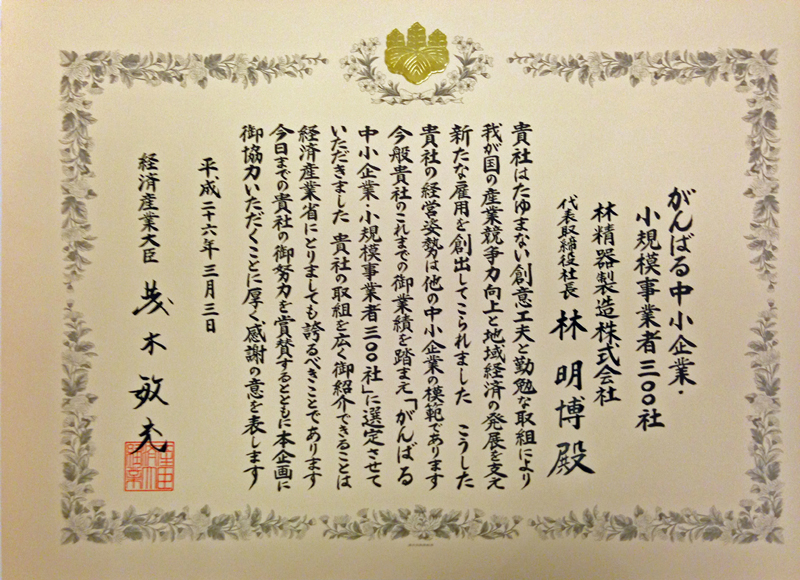 がんばる中小企業・
小規模事業者三〇〇社
林精器製造株式会社
代表取締役社長 林 明博 殿
貴社はたゆまない創意工夫と勤勉な取組により
我が国の産業競争力向上と地域経済の発展を支え
新たな雇用を創出してこられました こうした
貴社の経営姿勢は他の中小企業の模範であります
今般貴社のこれまでの御業績を踏まえ「がんばる
中小企業・小規模事業者三〇〇社」に選定させて
いただきました 貴社の取組を広く御紹介できることは
経済産業省にとりましても誇るべきことであります
今日までの貴社の御努力を賞賛するとともに本企画に
御協力いただくことに厚く感謝の意を表します
平成二十六年三月三日
経済産業大臣 茂木敏充